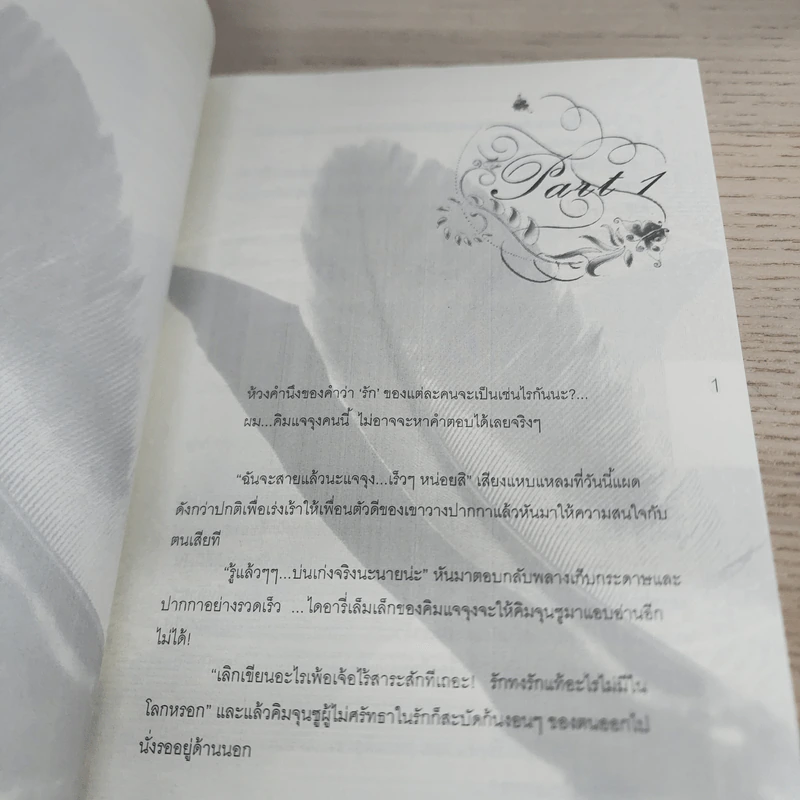 Part 1
1
ห้วงคำนึงของคำว่า ‘รัก’ ของแต่ละคนจะเป็นเช่นไรกันนะ?...
ผม...คิมแจจุงคนนี้ ไม่อาจจะหาคำตอบได้เลยจริงๆ
“ฉันจะสายแล้วนะแจจุง...เร็วๆ หน่อยสิ” เสียงแหบแหลมที่วันนี้แผด
ดังกว่าปกติเพื่อเร่งเร้าให้เพื่อนตัวดีของเขาวางปากกาแล้วหันมาให้ความสนใจกับ
ตนเสียที
“รู้แล้วๆๆ...บ่นเก่งจริงนะนายน่ะ” หันมาตอบกลับพลางเก็บกระดาษและ
ปากกาอย่างรวดเร็ว ...ไดอารี่เล็มเล็กของคิมแจจุงจะให้คิมจุนซูมาแอบอ่านอีก
ไม่ได้!
“เลิกเขียนอะไรเพ้อเจ้อไร้สาระสักทีเถอะ! รักทงรักแท้อะไรไม่มีใน
โลกหรอก” และแล้วคิมจุนซูผู้ไม่ศรัทธาในรักก็สะบัดก้นงอนๆ ของตนออกไป
นั่งรออยู่ด้านนอก